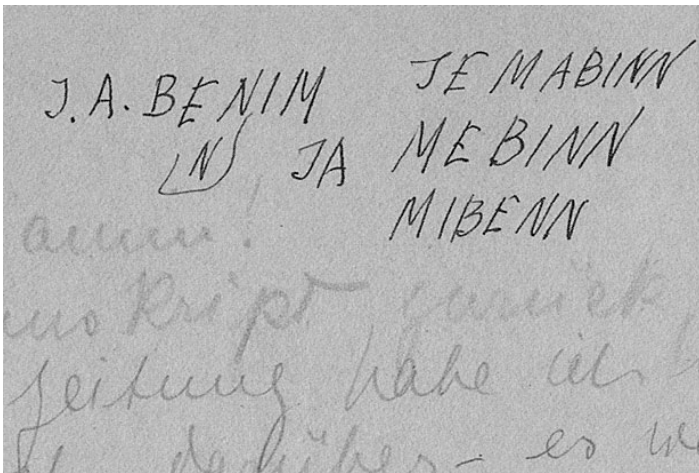 J.A. BENIM JE MABINN
(N) JA MEBINN
MIBENN
zurück
Zeitung habe ich
darüber - es